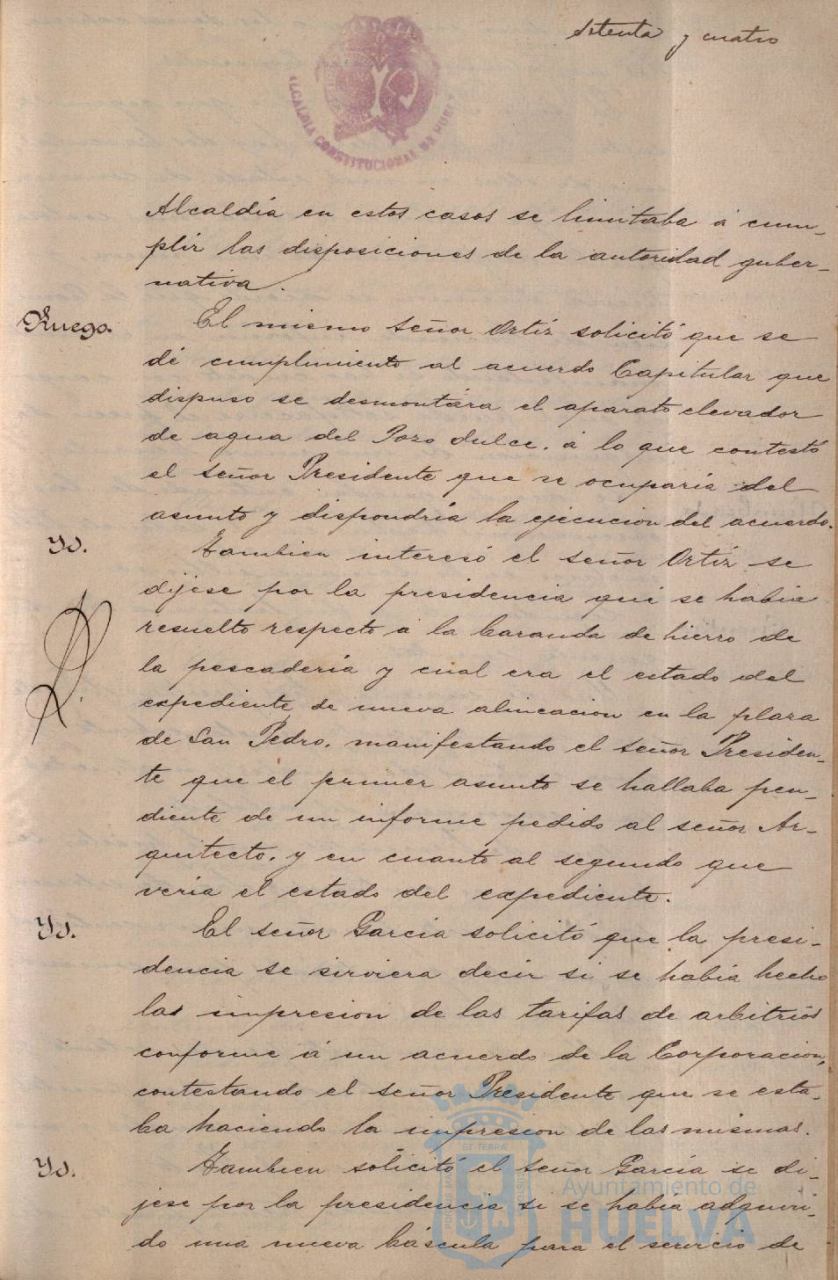 Setenta y cuatro
ALCALDIA CONSTITUCIONAL DE HUELVA
Alcaldía en estos casos se limitaba á cum-
plir las disposiciones de la autoridad guber-
nativa.
Ruego.
El mismo señor Ortiz solicitó que se
dé cumplimiento al acuerdo Capitular que
dispuso se desmontara el aparato elevador
de agua del Pozo dulce, á lo que contestó
el señor Presidente que se ocuparia del
asunto y dispondría la ejecucion del acuerdo.
Yd.
Tambien interesó el señor Ortiz se
dijese por la presidencia que se habia
resuelto respecto á la baranda de hierro de
la pescadería y cual era el estado del
expediente de nueva alineacion en la plaza
de San Pedro, manifestando el señor Presiden-
te que el primer asunto se hallaba pen-
diente de un informe pedido al señor Ar-
quitecto, y en cuanto al segundo que
veria el estado del expediente.
Yd.
El señor Garcia solicitó que la presi-
dencia se sirviera decir si se habia hecho
las impresion de las tarifas de arbitrios
conforme á un acuerdo de la Corporacion,
contestando el señor Presidente que se esta-
ba haciendo la impresion de las mismas.
Yd.
Tambien solicitó el señor Garcia se di-
jese por la presidencia si se habia adquiri-
do una nueva báscula para el servicio de
Ayuntamiento de
HUELVA